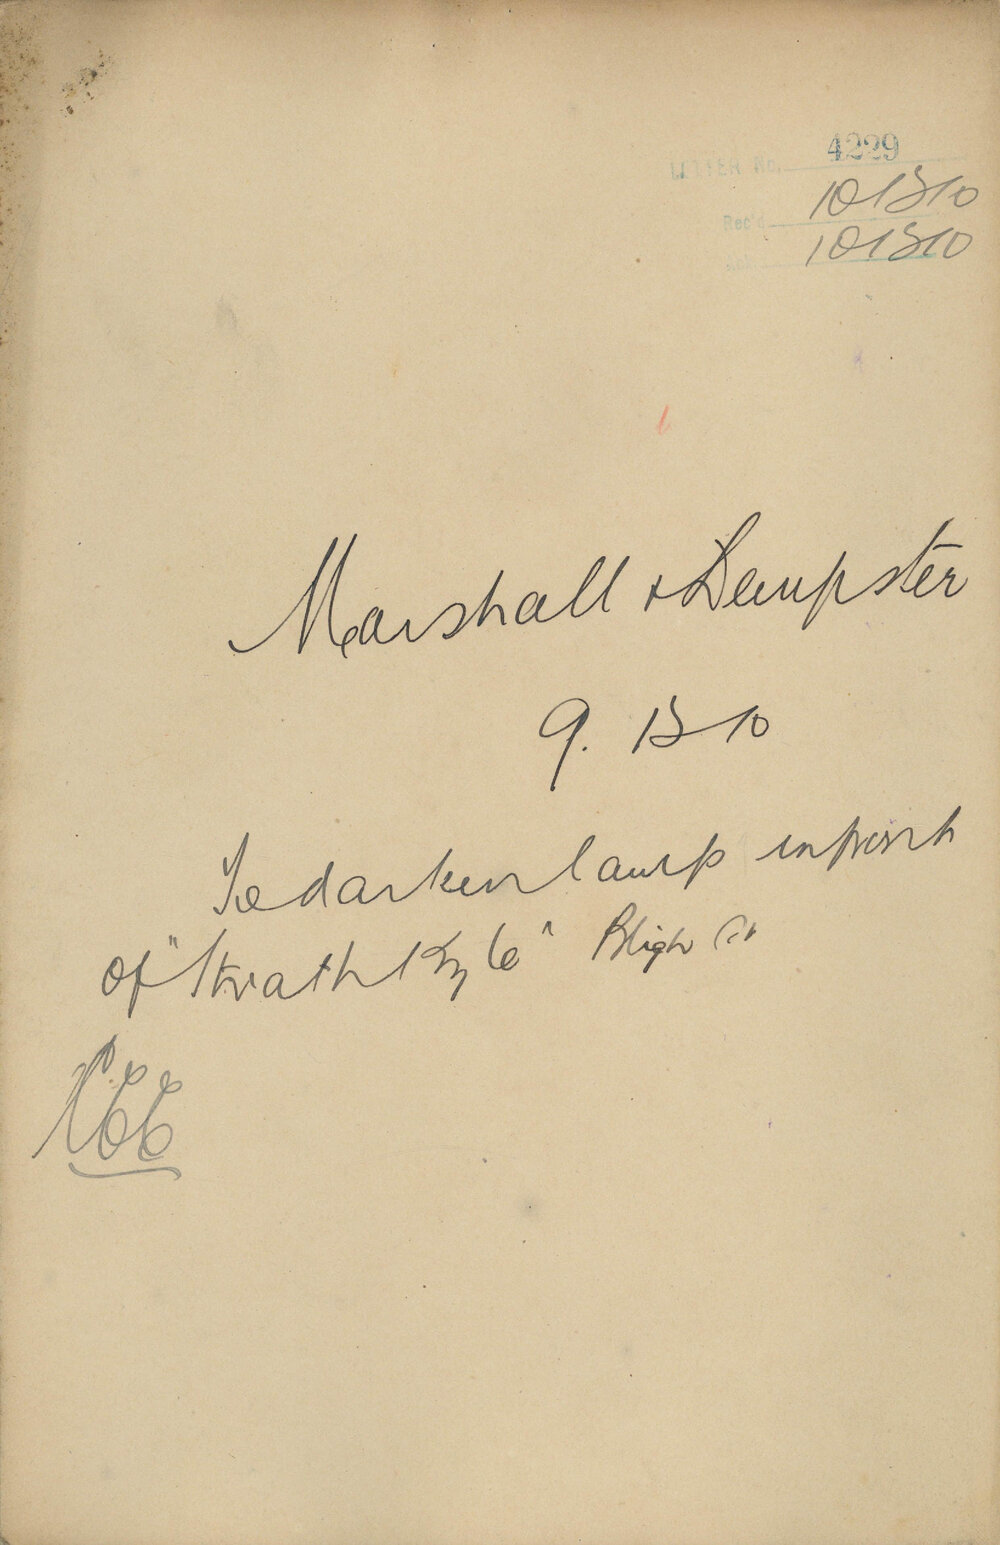 LETTER No. 4229
Rec'd 10/3/10
Ack 10/3/10
Marshall & Dempster
9. 3/10
To darken lamp in front
of "Strath Kyle" Bligh St